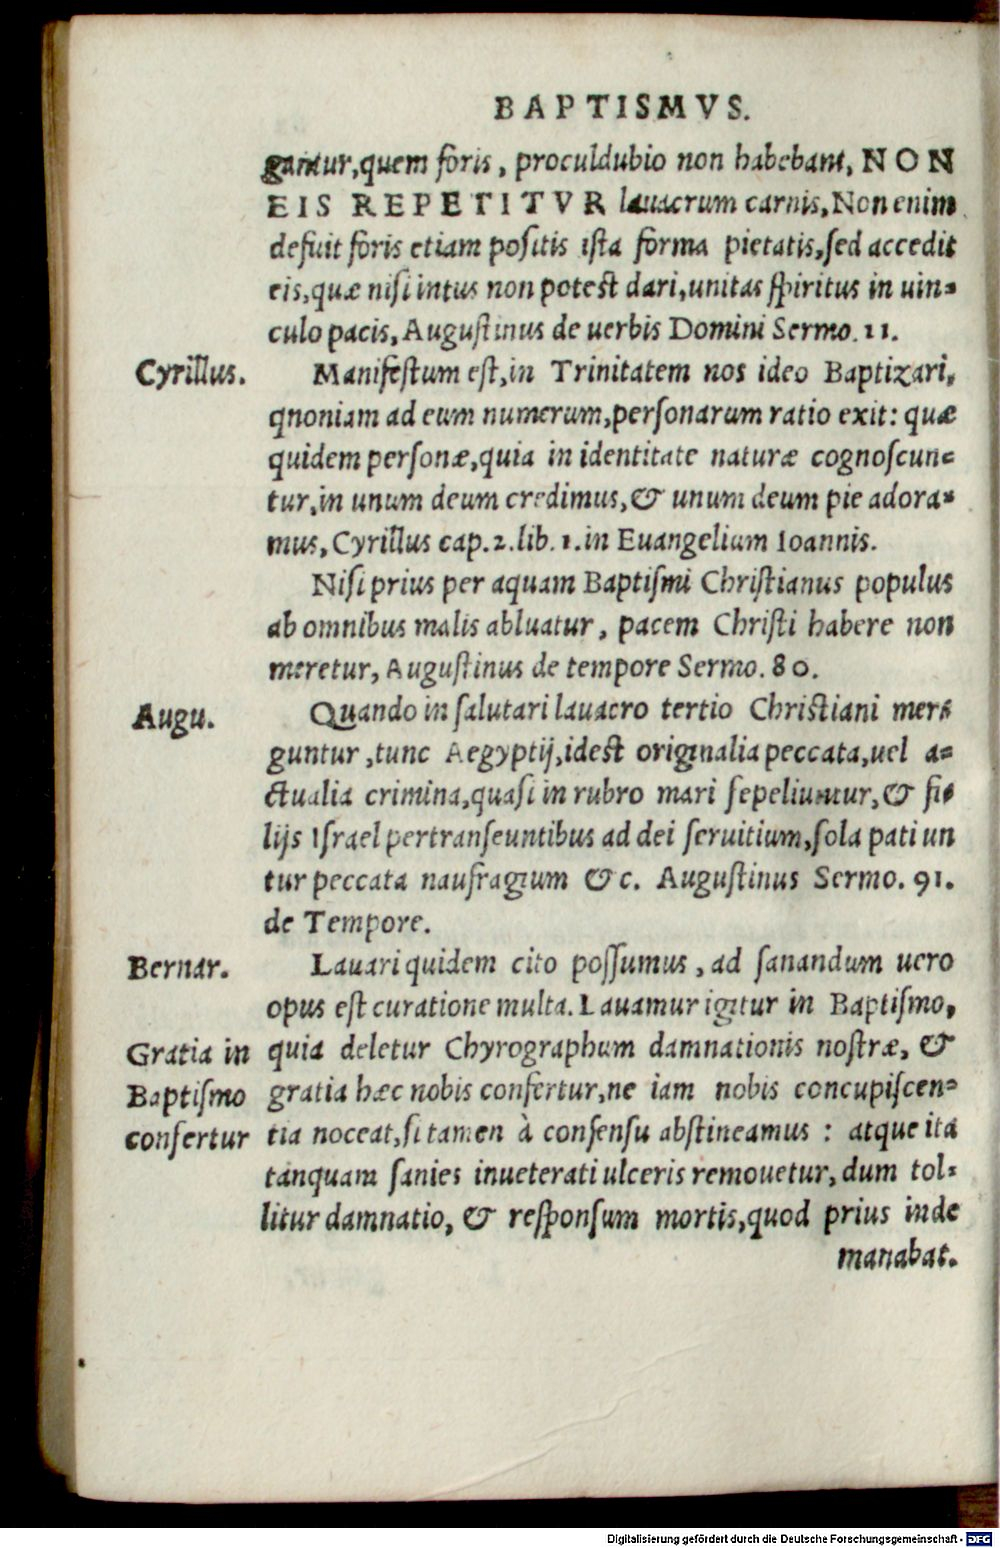 BAPTISMVS.
gantur,quem foris, proculdubio non habebant, NON
EIS REPETITVR lauacrum carnis,Non enim
defuit foris etiam positis ista forma pietatis,sed accedit
eis,quæ nisi intus non potest dari,unitas spiritus in uin=
culo pacis, Augustinus de uerbis Domini Sermo. 11.
Cyrillus.
Manifestum est,in Trinitatem nos ideo Baptizari,
qnoniam ad eum numerum,personarum ratio exit: quæ
quidem personæ,quia in identitate naturæ cognoscun=
tur,in unum deum credimus,& unum deum pie adora=
mus, Cyrillus cap.2.lib.1.in Euangelium Ioannis.
Nisi prius per aquam Baptismi Christianus populus
ab omnibus malis abluatur, pacem Christi habere non
meretur, Augustinus de tempore Sermo. 80.
Augu.
Quando in salutari lauacro tertio Christiani mer=
guntur,tunc Aegyptij,idest originalia peccata,uel a=
ctualia crimina,quasi in rubro mari sepeliuntur,& fi=
lijs Israel pertranseuntibus ad dei seruitium,sola pati un
tur peccata naufragium &c. Augustinus Sermo. 91.
de Tempore.
Bernar.
Lauari quidem cito possumus, ad sanandum uero
opus est curatione multa. Lauamur igitur in Baptismo,
Gratia in
Baptismo
confertur
quia deletur Chyrographum damnationis nostræ, &
gratia hæc nobis confertur,ne iam nobis concupiscen=
tia noceat,si tamen à consensu abstineamus : atque ita
tanquam sanies inueterati ulceris remouetur,dum tol=
litur damnatio, & responsum mortis,quod prius inde
manabat.
Digitalisierung gefördert durch die Deutsche Forschungsgemeinschaft - DFG